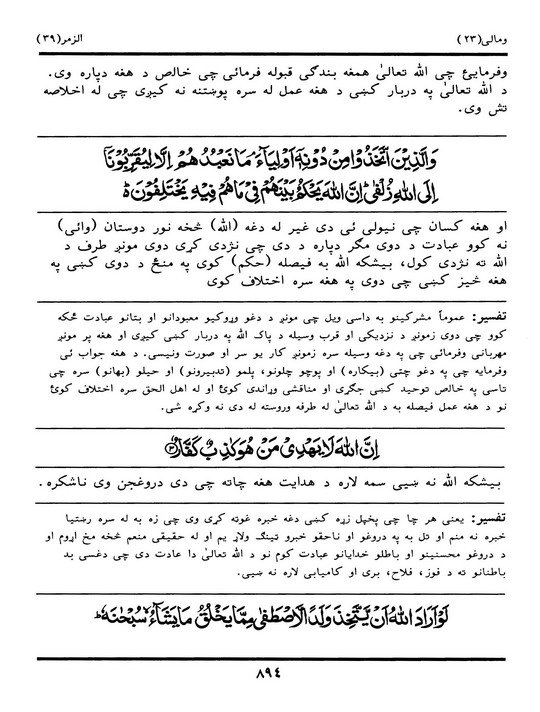 ومالي(٢٣) الزمر(٣٩)
وفرمايئ چي الله تعالىٰ همغه بندګي قبوله فرمائي چي خالص د هغه دپاره وي.
د الله تعالىٰ په دربار كښي د هغه عمل له سره پوښتنه نه كيږي چي له اخلاصه
تش وي.
وَالَّذِيْنَ اتَّخَذُوْا مِنْ دُوْنِهٖٓ اَوْلِيَآءَ ۘ مَا نَعْبُدُهُمْ اِلَّا لِيُقَرِّبُوْنَآ
اِلَى اللّٰهِ زُلْفٰى ؕ اِنَّ اللّٰهَ يَحْكُمُ بَيْنَهُمْ فِيْ مَا هُمْ فِيْهِ يَخْتَلِفُوْنَ ۬ؕ
او هغه كسان چي نيولي ئي دي غير له دغه (الله) څخه نور دوستان (وائي)
نه كوو عبادت د دوي مګر دپاره د دي چي نژدي كړي دوي مونږ طرف د
الله ته نژدي كول، بيشكه الله به فيصله (حكم) كوي په منځ د دوي كښي په
هغه څيز كښي چي دوي په هغه سره اختلاف كوي
تفسير: عموماً مشركينو به داسي ويل چي مونږ د دغو وړوكيو معبودانو او بتانو عبادت ځكه
كوو چي دوي زمونږ د نزديكي او قرب وسيله د پاك الله په دربار كښي كيږي او هغه پر مونږ
مهرباني وفرمائي چي په دغه وسيله سره زمونږ كار يو سر او صورت ونيسي. د هغه جواب ئي
وفرمايه چي په دغو چتي (بيكاره) او پوچو چلونو، پلمو (تدبيرونو) او حيلو (بهانو) سره چي
تاسي په خالص توحيد كښي جګړي او مناقشي وړاندي كوئ او له اهل الحق سره اختلاف كوئ
نو د هغه عمل فيصله به د الله تعالىٰ له طرفه وروسته له دي نه وكړه شي.
اِنَّ اللّٰهَ لَا يَهْدِيْ مَنْ هُوَ كٰذِبٌ كَفَّارٌ ۝۳
بيشكه الله نه ښيي سمه لاره د هدايت هغه چاته چي دي دروغجن وي ناشكره.
تفسير: يعني هر چا چي پخپل زړه كښي دغه خبره غوته كړي وي چي زه به له سره رښتيا
خبره نه منم او تل به په دروغو او ناحقو خبرو تينګ ولاړ يم او له حقيقي منعم څخه مخ اړوم او
د دروغو محسنينو او باطلو خدايانو عبادت كوم نو د الله تعالىٰ دا عادت دى چي دغسي بد
باطنانو ته د فوز، فلاح، بري او كاميابي لاره نه ښيي.
لَوْ اَرَادَ اللّٰهُ اَنْ يَّتَّخِذَ وَلَدًا لَّاصْطَفٰى مِمَّا يَخْلُقُ مَا يَشَآءُ ۙ سُبْحٰنَهٗ ؕ
٨٩٤